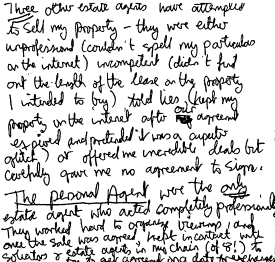 Three other estate agents have attempted
to sell my property - they were either
unprofessional (couldn't spell my particulars
on the internet) incompetent (didn't find
out the length of the lease on the property
I intended to buy) told lies (kept my
property on the internet after our agreement
expired and pretended it was a computer
glitch) or offered me incredible deals but
carefully gave me no agreement to sign.
The personal Agent were the only
estate agent who acted completely professional
They worked hard to organise viewings and
once the sale was agreed kept in contact with
solicitors & estate agents in my chain (of 8!) to
to agree on a date to exchange